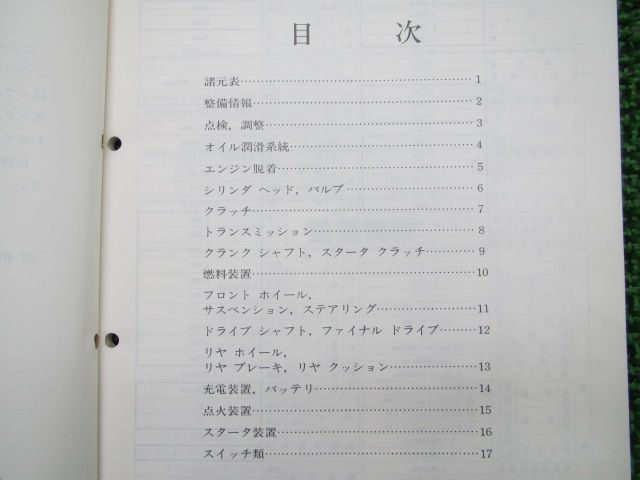 目 次
諸元表…………………………………………1
整備情報………………………………………2
点検，調整……………………………………3
オイル潤滑系統………………………………4
エンジン脱着…………………………………5
シリンダ ヘッド，バルブ……………………6
クラッチ………………………………………7
トランスミッション…………………………8
クランク シャフト，スタータ クラッチ……9
燃料装置………………………………………10
フロント ホイール，
サスペンション，ステアリング……………11
ドライブ シャフト，ファイナル ドライブ…12
リヤ ホイール，
リヤ ブレーキ，リヤ クッション……………13
充電装置，バッテリ…………………………14
点火装置………………………………………15
スタータ装置…………………………………16
スイッチ類……………………………………17